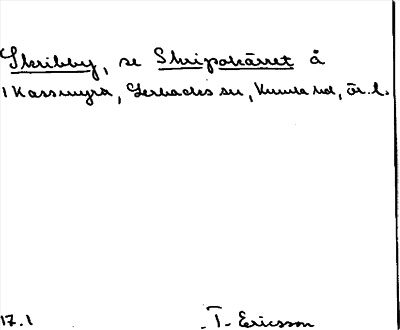 Skribby, se Skripakärret å
1 Kassmyra, Lerbäcks sn, Kumla hd, ör. l.
17.1
T. Ericsson